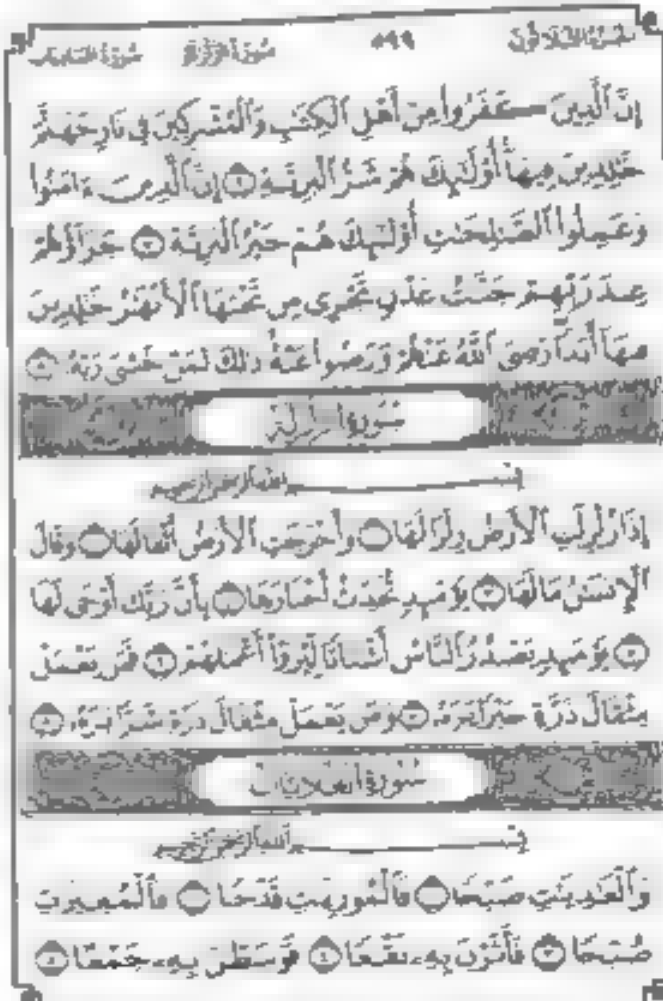 سُورَةُ الزَّلْزَلَةِ ٥٩٩ سُورَةُ العَادِيَاتِ
إِنَّ ٱلَّذِينَ كَفَرُوا۟ مِنْ أَهْلِ ٱلْكِتَٰبِ وَٱلْمُشْرِكِينَ فِى نَارِ جَهَنَّمَ
خَٰلِدِينَ فِيهَآ أُو۟لَٰٓئِكَ هُمْ شَرُّ ٱلْبَرِيَّةِ ٦ إِنَّ ٱلَّذِينَ ءَامَنُوا۟
وَعَمِلُوا۟ ٱلصَّٰلِحَٰتِ أُو۟لَٰٓئِكَ هُمْ خَيْرُ ٱلْبَرِيَّةِ ٧ جَزَآؤُهُمْ
عِندَ رَبِّهِمْ جَنَّٰتُ عَدْنٍ تَجْرِى مِن تَحْتِهَا ٱلْأَنْهَٰرُ خَٰلِدِينَ
فِيهَآ أَبَدًا رَّضِىَ ٱللَّهُ عَنْهُمْ وَرَضُوا۟ عَنْهُ ذَٰلِكَ لِمَنْ خَشِىَ رَبَّهُۥ ٨
سُورَةُ الزَّلْزَلَةِ
بِسْمِ ٱللَّهِ ٱلرَّحْمَٰنِ ٱلرَّحِيمِ
إِذَا زُلْزِلَتِ ٱلْأَرْضُ زِلْزَالَهَا ١ وَأَخْرَجَتِ ٱلْأَرْضُ أَثْقَالَهَا ٢ وَقَالَ
ٱلْإِنسَٰنُ مَا لَهَا ٣ يَوْمَئِذٍ تُحَدِّثُ أَخْبَارَهَا ٤ بِأَنَّ رَبَّكَ أَوْحَىٰ لَهَا
٥ يَوْمَئِذٍ يَصْدُرُ ٱلنَّاسُ أَشْتَاتًا لِّيُرَوْا۟ أَعْمَٰلَهُمْ ٦ فَمَن يَعْمَلْ
مِثْقَالَ ذَرَّةٍ خَيْرًا يَرَهُۥ ٧ وَمَن يَعْمَلْ مِثْقَالَ ذَرَّةٍ شَرًّا يَرَهُۥ ٨
سُورَةُ العَادِيَاتِ
بِسْمِ ٱللَّهِ ٱلرَّحْمَٰنِ ٱلرَّحِيمِ
وَٱلْعَٰدِيَٰتِ ضَبْحًا ١ فَٱلْمُورِيَٰتِ قَدْحًا ٢ فَٱلْمُغِيرَٰتِ
صُبْحًا ٣ فَأَثَرْنَ بِهِۦ نَقْعًا ٤ فَوَسَطْنَ بِهِۦ جَمْعًا ٥